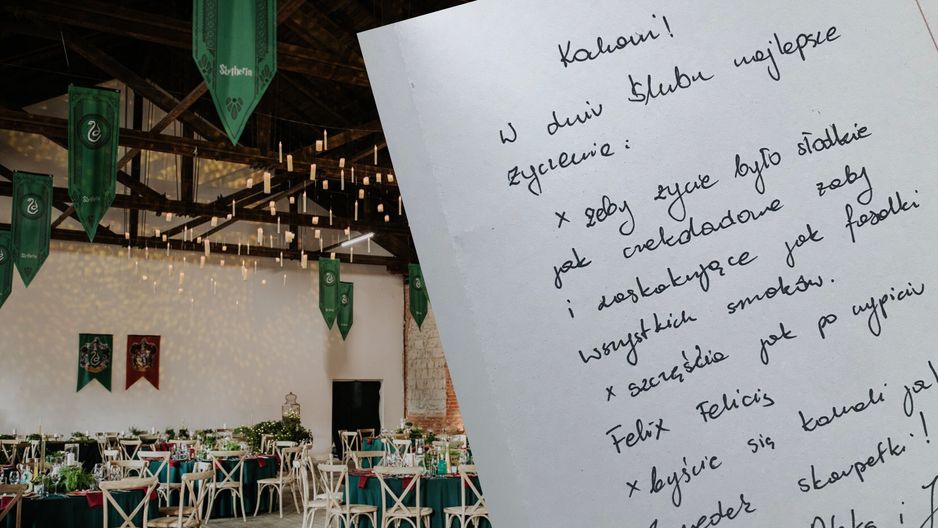 Slytherin
Kochani!
W dniu Ślubu najlepsze
życzenia:
x żeby życie było słodkie
jak czekoladowe żaby
i zaskakujące jak fasolki
wszystkich smaków.
x szczęścia jak po wypiciu
Felix Felicis
x byście się kochali ja
skarpetki!
i